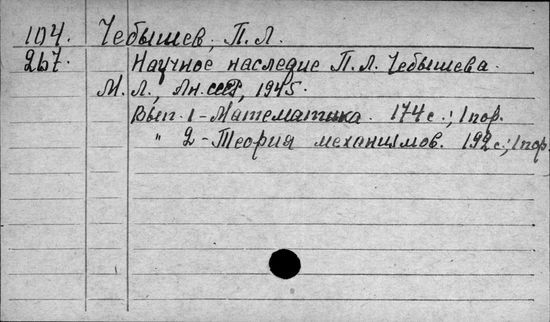 104. Чебышев, П. Л.
267. Научное наследие П. Л. Чебышева.
М. Л., Ан. СССР, 1945.
Вып. 1 - Математика. 174 с.; 1 пор.
" 2 - Теория механизмов. 192 с.; 1 пор.